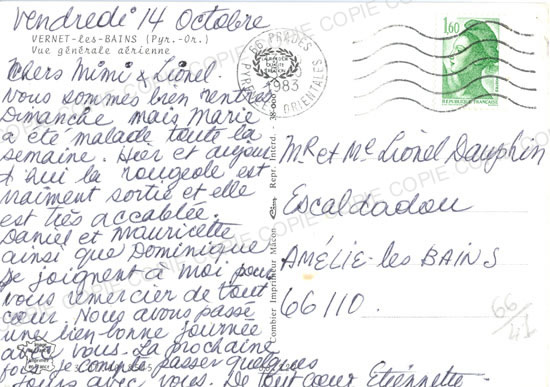 Vendredi 14 Octobre
VERNET-les-BAINS (Pyr.-Or.)
Vue générale aérienne
Chers Mimi & Lionel.
Nous sommes bien rentrés
Dimanche mais Marie
a été malade toute la
semaine. Hier et aujour
d'hui la rougeole est
vraiment sortie et elle
est très accablée.
Daniel et Mauricette
ainsi que Dominique
se joignent à moi pour
vous remercier de tout
cœur. Nous avons passé
une bien bonne journée
avec vous. La prochaine
fois je compte passer quelques
jours avec vous. De tout cœur Etiennette
66 PRADES
1983
PYRENEES ORIENTALES
1,60
REPUBLIQUE FRANÇAISE
Combier Imprimeur Macon
Repr. Interd.
Mr et Me Lionel Dauphin
Escaldadou
AMÉLIE-les BAINS
66110.
66/41
COPIE COPIE COPIE COPIE